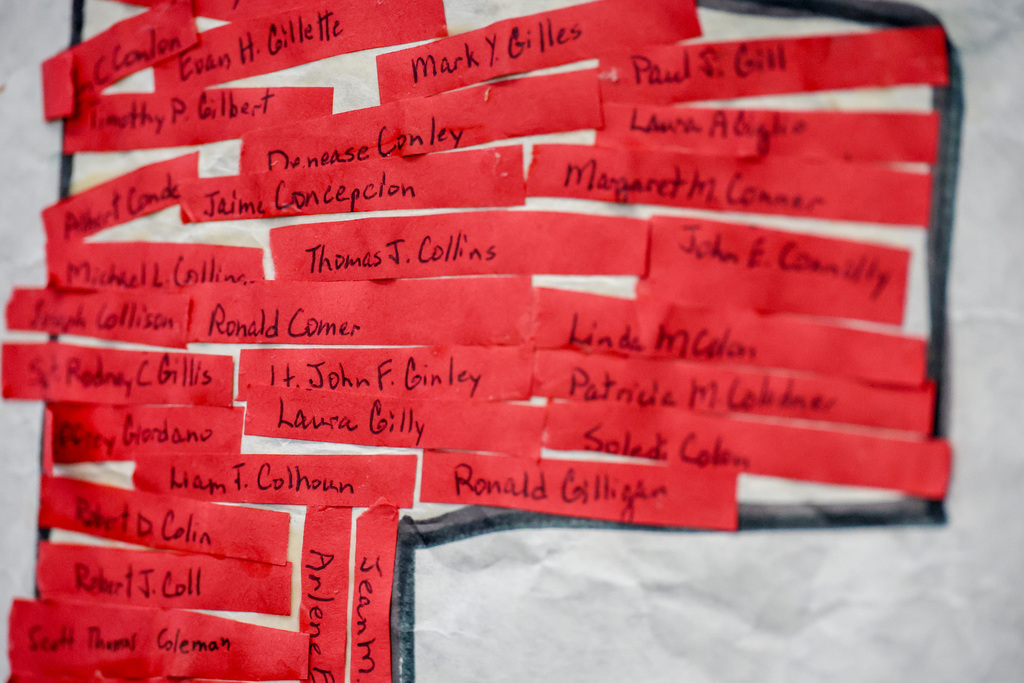 C Conlon
Evan H. Gillette
Mark Y. Gilles
Paul S. Gill
Timothy P. Gilbert
Denease Conley
Laura A Giglio
Albert Conde
Jaime Concepcion
Margaret M. Conner
Michael L. Collins
Thomas J. Collins
John E. Connolly
Joseph Collison
Ronald Comer
Linda M Colon
Rodney C Gillis
Lt. John F. Ginley
Patricia M Colodner
Giordano
Laura Gilly
Soledi Colon
Liam J. Colhoun
Ronald Gilligan
Robert D Colin
Robert J. Coll
Scott Thomas Coleman
Arlene E
Jean M.